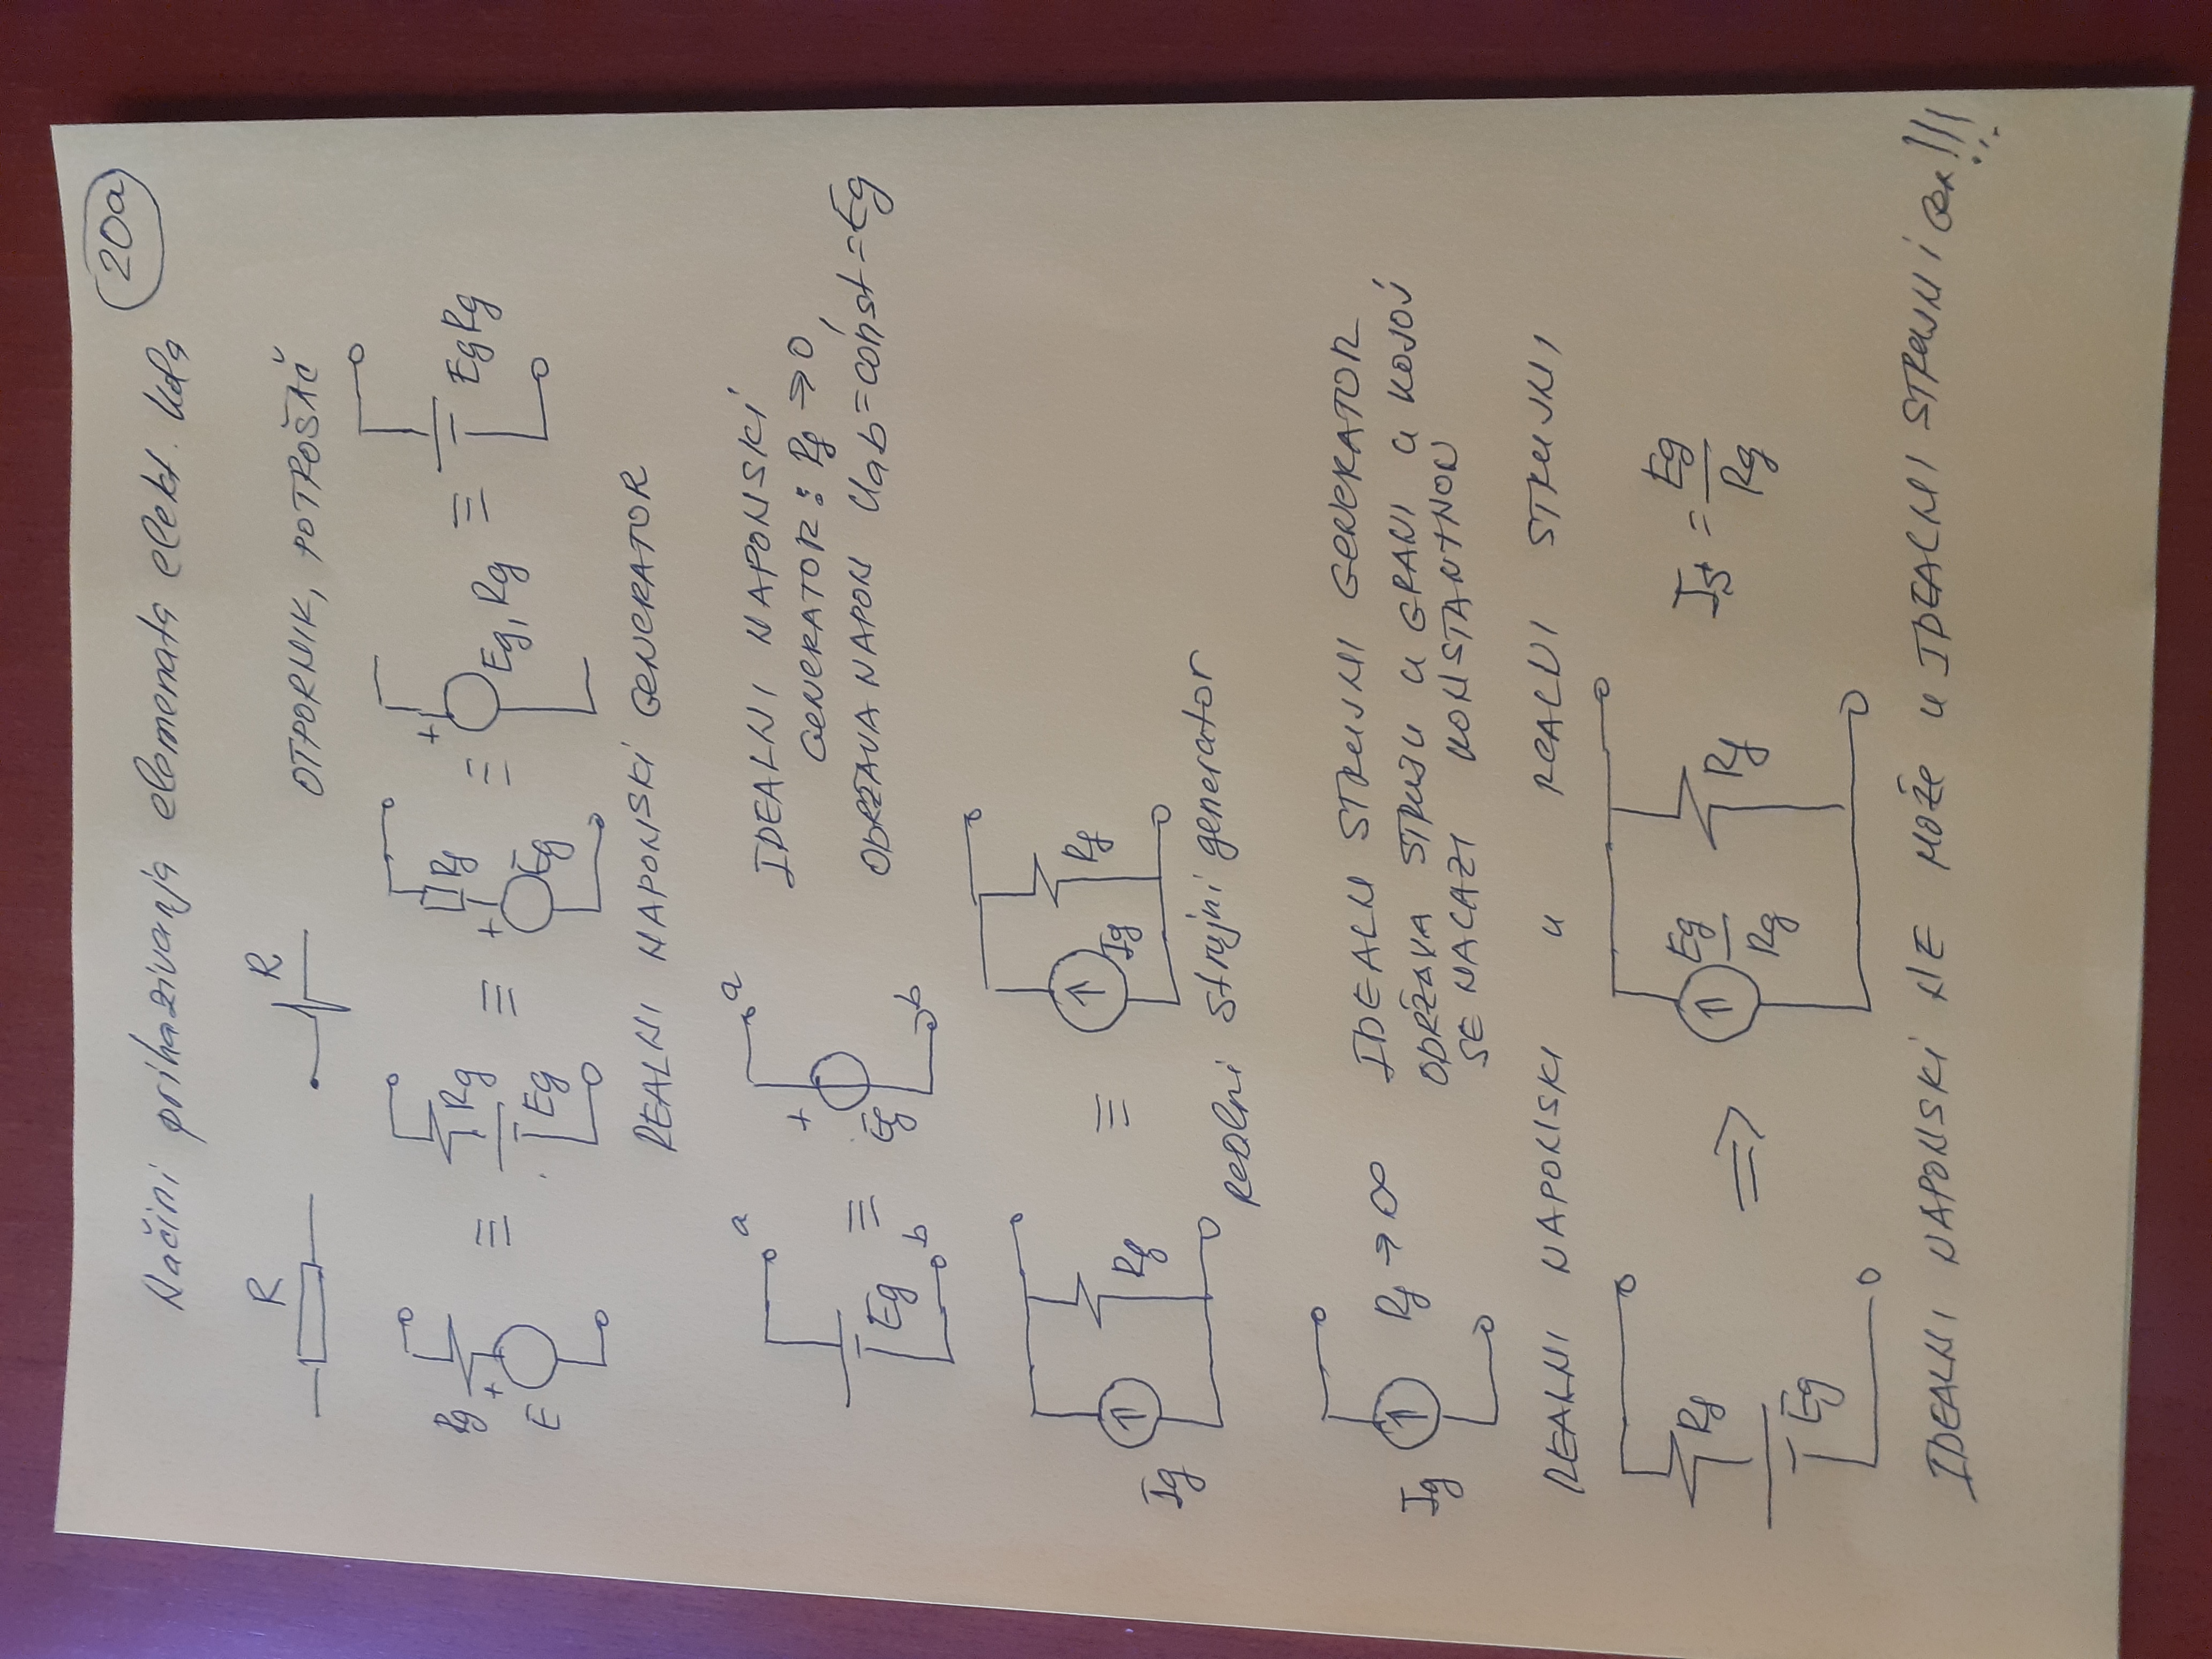 20a
Načini prikazivanja elemenata elekt. kola
R R OTPORNIK, POTROŠAČ
Rg + E ≡ Rg Eg ≡ + Rg Eg ≡ + Eg, Rg ≡ Eg Rg
REALNI NAPONSKI GENERATOR
a b Eg ≡ + Eg a b
IDEALNI NAPONSKI
GENERATOR: Rg → 0
ODRŽAVA NAPON Uab = const = Eg
Ig Rg ≡ Ig Rg
Realni strujni generator
Ig Rg → ∞
IDEALN STRUJNI GENERATOR
ODRŽAVA STRUJU U GRANI U KOJOJ
SE NALAZI KONSTANTNOM
REALNI NAPONSKI u REALNI STRUJNI,
Rg Eg ⇒ Eg/Rg Rg Is = Eg/Rg
IDEALNI NAPONSKI NE MOŽE u IDEALNI STRUJNI i !!!